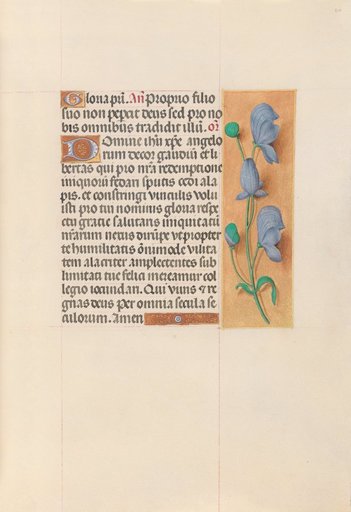 Gloria pri. An Proprio filio
suo non pepcit deus sed pro no
bis omnibus tradidit illū. or
Domine ihū xpe angelo
rum decor gaudiū et li
bertas qui pro nrā redemptione
iniquorū fedari sputis cedi ala
pis. et constringi vinculis volu
isti pro tui nominis gloria respe
ctu gratie salutaris iniquitatū
nrārum nexus dirūpe vt propter
te humilitatis ōnimode vilita
tem alacriter amplectentes sub
limitati tue felici mereamur col
legio iocundari. Qui viuis et re
gnas deus Per omnia secula se
culorum. Amen